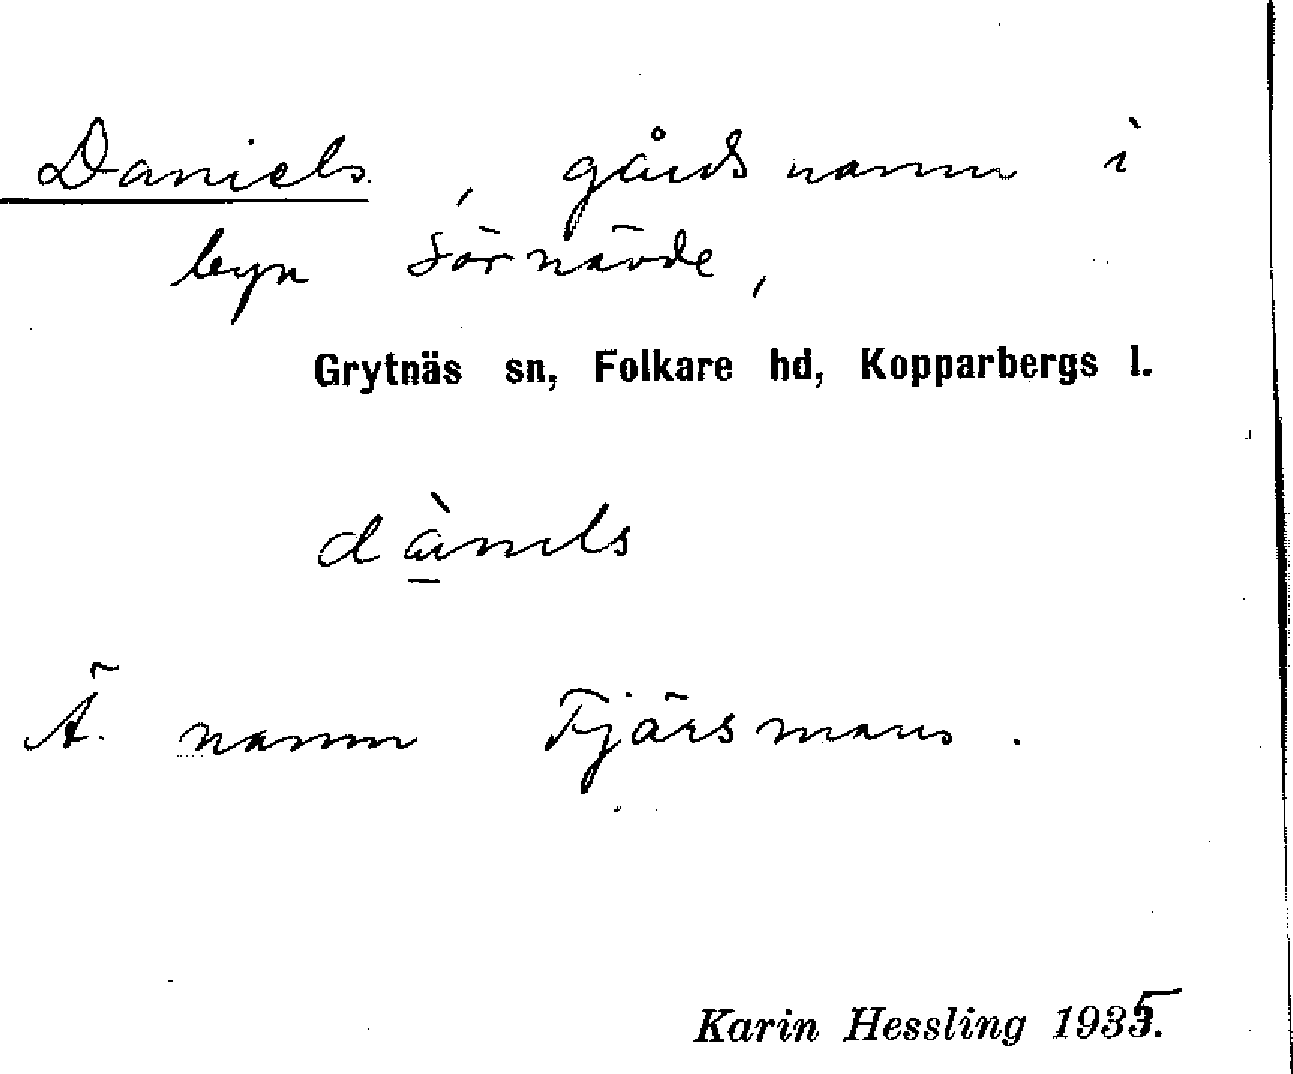 Daniels, gårdsnamn i
byn Sörnävde,
Grytnäs sn, Folkare hd, Kopparbergs l.
dà̱nɩls
Ä. namn Fjärsmans.
Karin Hessling 1935.